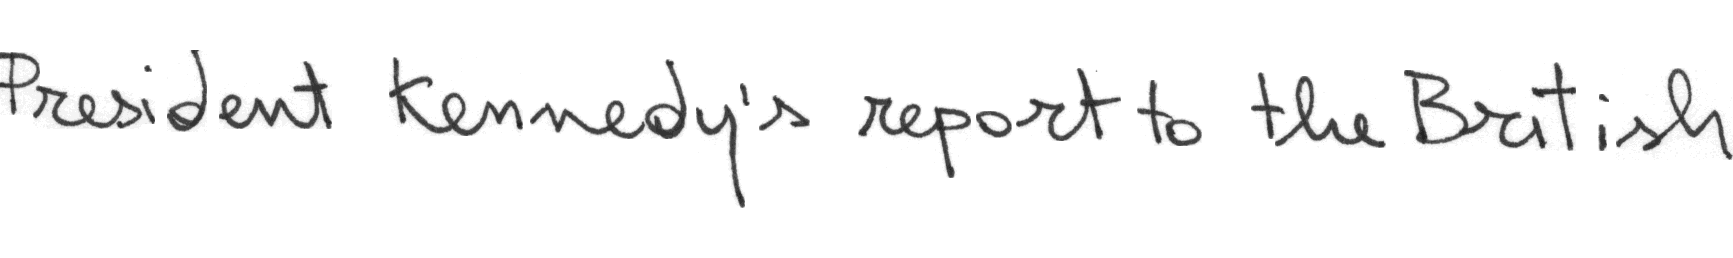 President Kennedy's report to the British